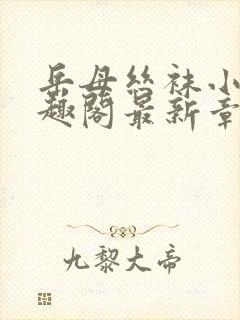 岳母丝袜小
趣阁最新章
九黎大帝